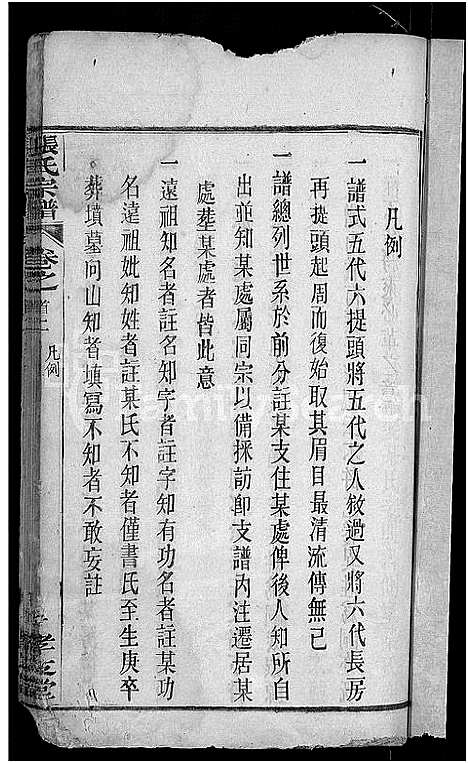 凡例
一譜式五代六提頭將五代之人敘過又將六代長房
再提頭起周而復始取其眉目最清流傳無已
一譜總列世系於前分註某支住某處俾後人知所自
出並知某處屬同宗以備採訪卽支譜內注遷居某
處塟某處者皆此意
一遠祖知名者註名知字者註字知有功名者註某功
名遠祖妣知姓者註某氏不知者僅書氏至生庚卒
葬墳墓向山知者填寫不知者不敢妄註
張氏宗譜
卷之首上
凡例
孝友堂